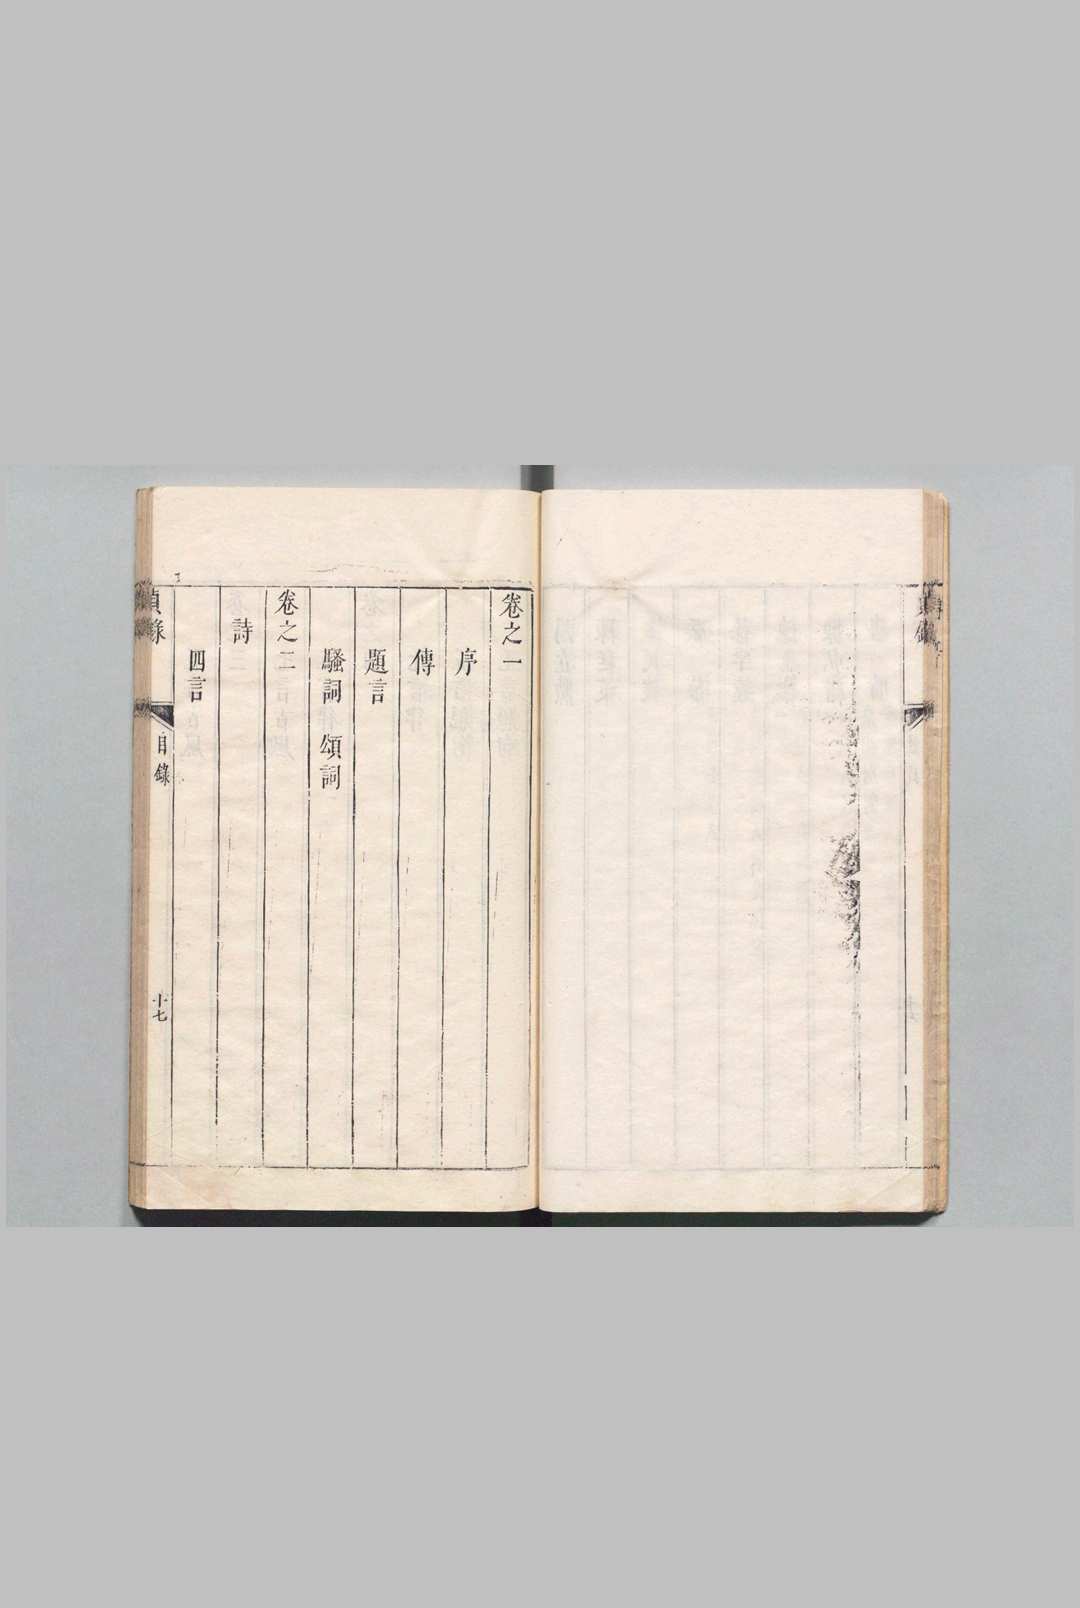 卷之一
序
傳
題言
騷詞 頌詞
卷之二
詩
四言
目錄
十七